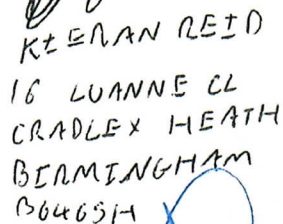 KIERAN REID
16 LUANNE CL
CRADLEY HEATH
BIRMINGHAM
B646SH